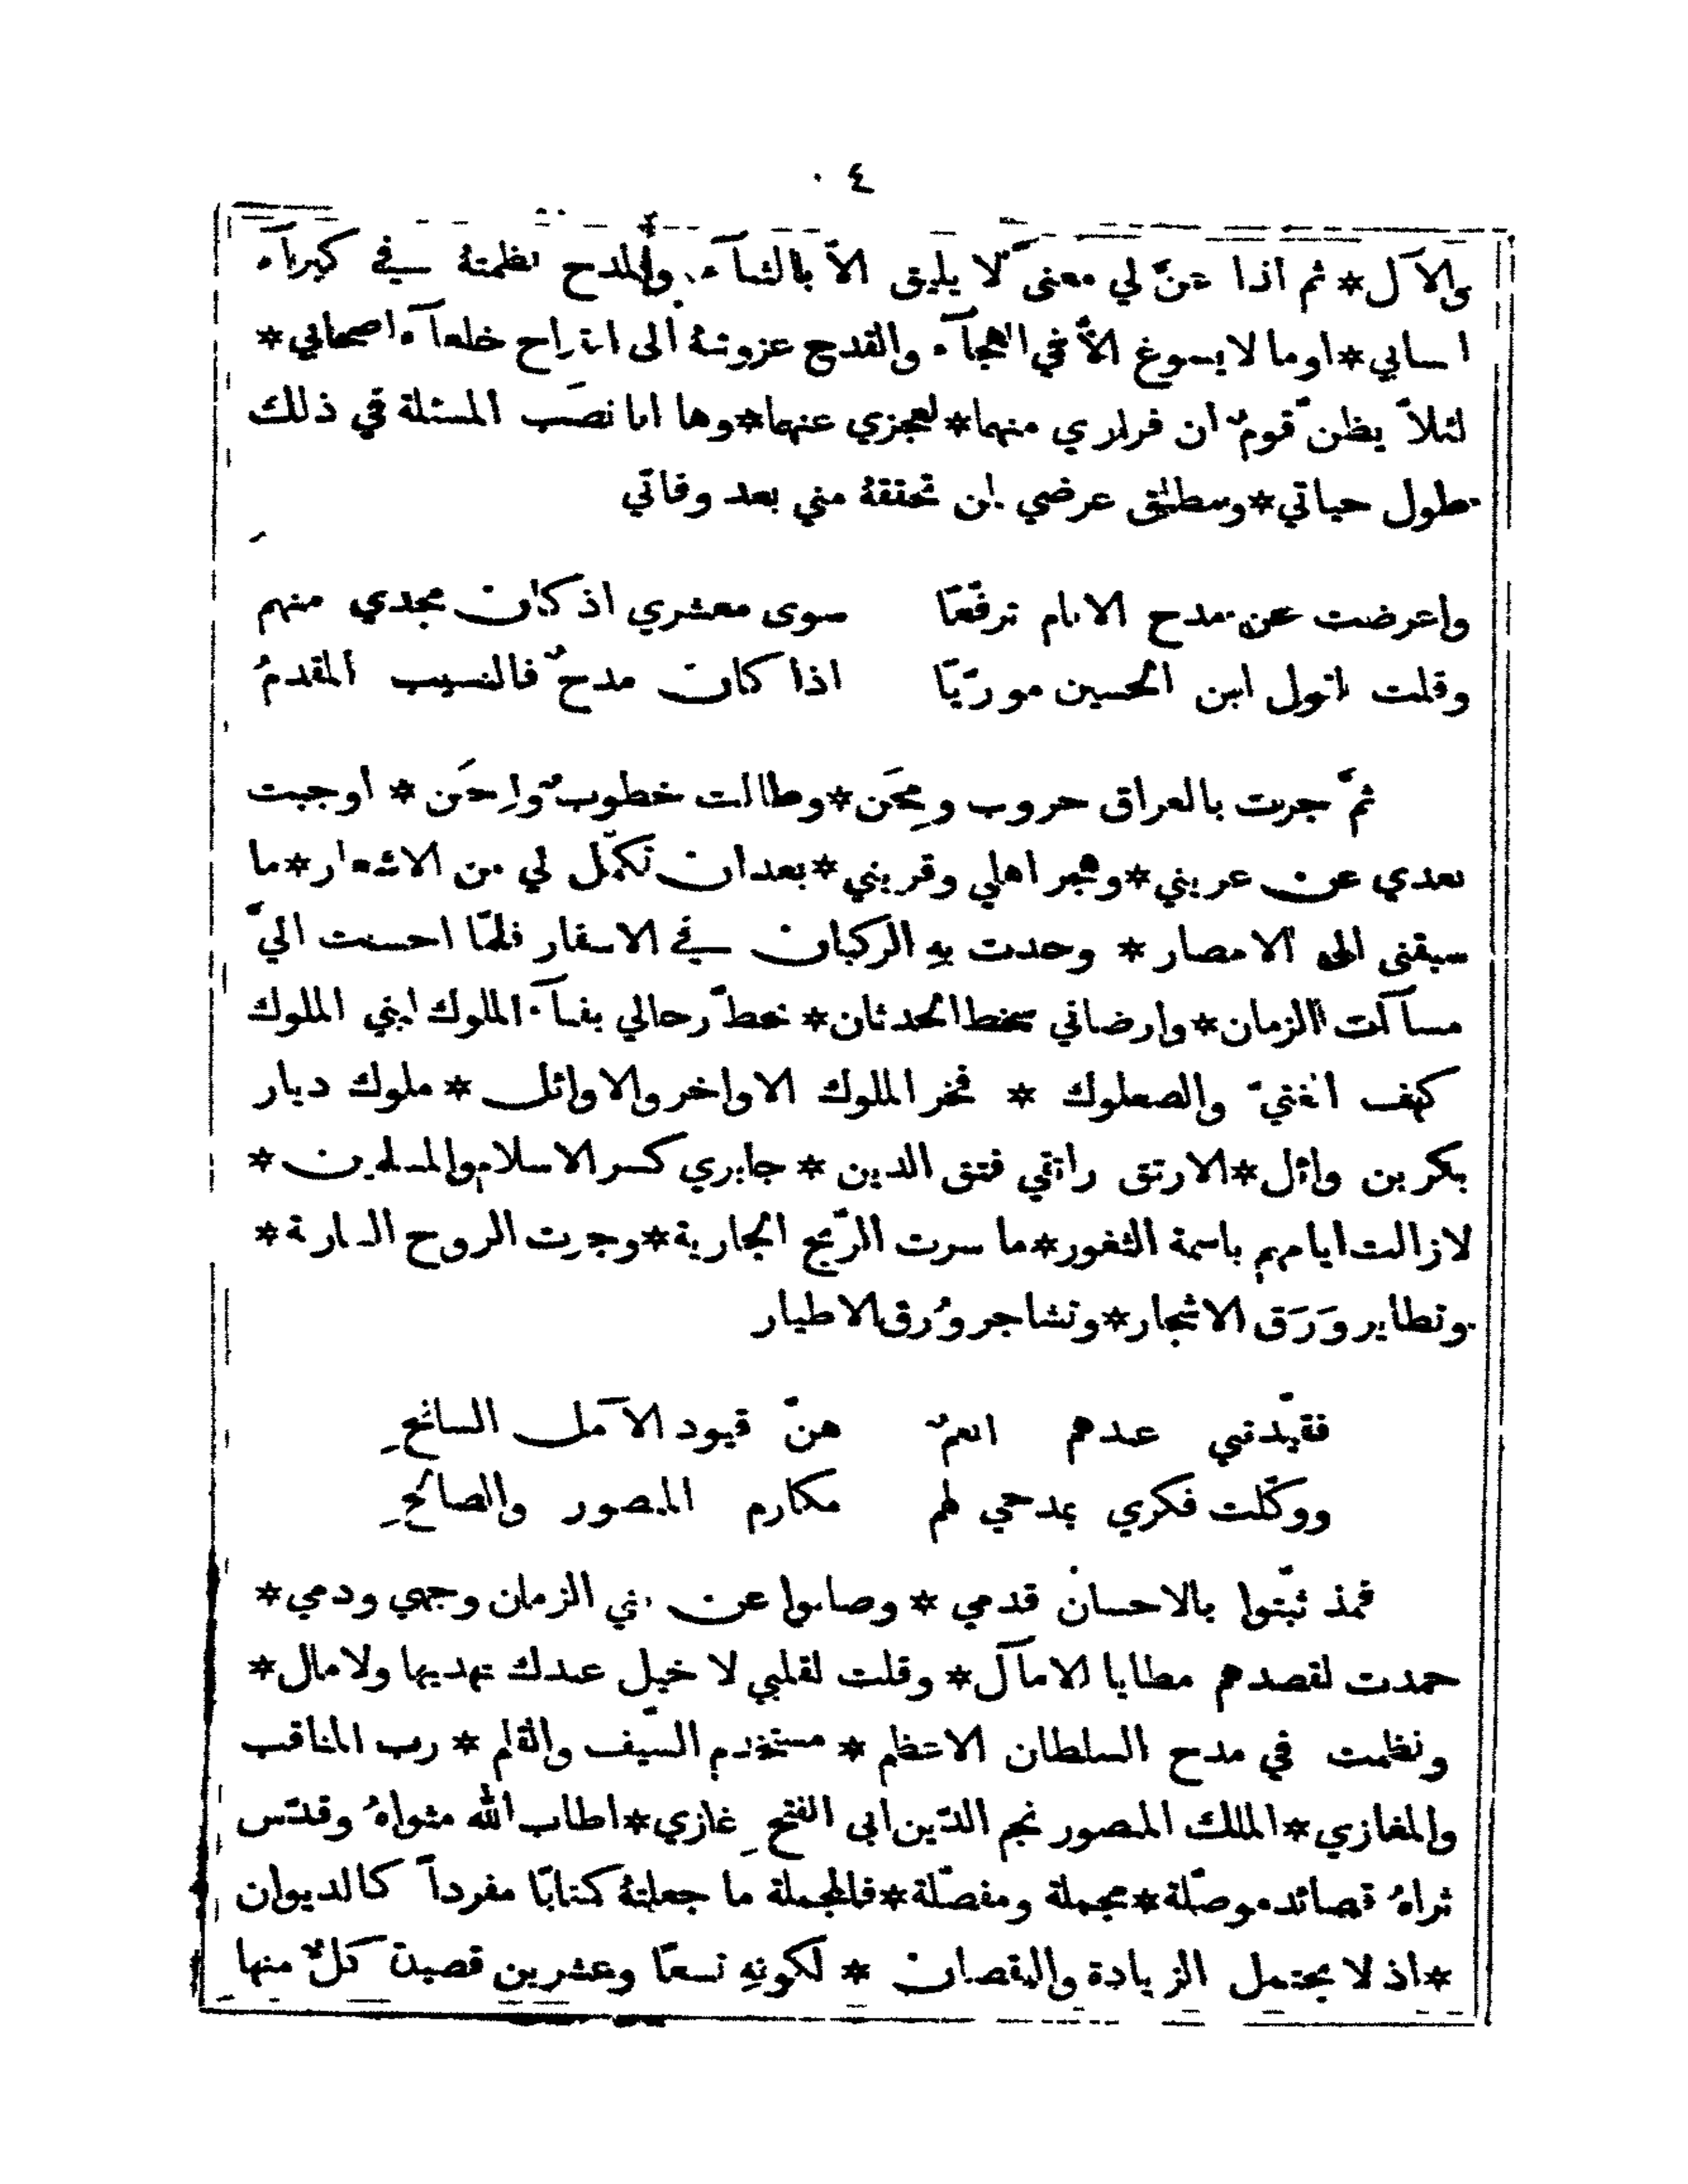 ٤
والآل * ثم اذا عنّ لي معنىً لا يليق الاّ بالثنآء والمدح نظمتهُ في كبرآء
انسابي * او ما لا يسوغ الاّ في الهجآء والقدح عزوتهُ الى اقتراح خلعآء اصحابي *
لئلاّ يظنّ قومٌ ان فراري منهما * لعجزي عنهما * وها انا نصَب المسئلة في ذلك
طول حياتي * ومطلق عرضي لمن تحققهُ مني بعد وفاتي
واعرضت عن مدح الانام ترفّعًا سوى معشري اذ كان مجدي منهم
وقلت لقول ابن الحسين مورّيًا اذا كان مدحٌ فالنسيب المقدمُ
ثمَّ جرت بالعراق حروب ومِحَن * وطالت خطوبٌ واِحَن * اوجبت
بعدي عن عريني * وهجر اهلي وقريني * بعد ان تكمّل لي من الاشعار * ما
سبقني الى الامصار * وحدت بهِ الركبان في الاسفار فلمّا احسنت اليَّ
مسآآت الزمان * وارضاني سخط الحدثان * بحطّ رحالي بفنآء الملوك ابني الملوك
كهف الغنيّ والصعلوك * فخر الملوك الاواخر والاوائل * ملوك ديار
بكر بن وائل * الارتق راتقي فتق الدين * جابري كسر الاسلام والمسلمين *
لا زالت ايامهم باسمة الثغور * ما سرت الرّيح الجارية * وجرت الروح السارية *
وتطاير وَرَق الاشجار * وتشاجر وُرق الاطيار
فقيّدتني عندهم انعمٌ هنّ قيود الآمل السانحِ
ووكّلت فكري بمدحي لهم مكارم المنصور والصالحِ
فمذ ثبّتوا بالاحسان قدمي * وصانوا عن بني الزمان وجهي ودمي *
حمدت لقصدهم مطايا الامآل * وقلت لقلبي لا خيل عندك تهديها ولا مال *
ونظمت في مدح السلطان الاعظم * مستخدم السّيف والقلم * رب المناقب
والمغازي * الملك المنصور نجم الدّين ابى الفتحِ غازي * اطاب الله مثواهُ وقدّس
ثراهُ قصائد موصّلة * مجملة ومفصّلة * فالمجملة ما جعلتهُ كتابًا مفرداً كالديوان
* اذ لا يحتمل الزيادة والنقصان * لكونهِ تسعًا وعشرين قصيدة كلٌّ منها